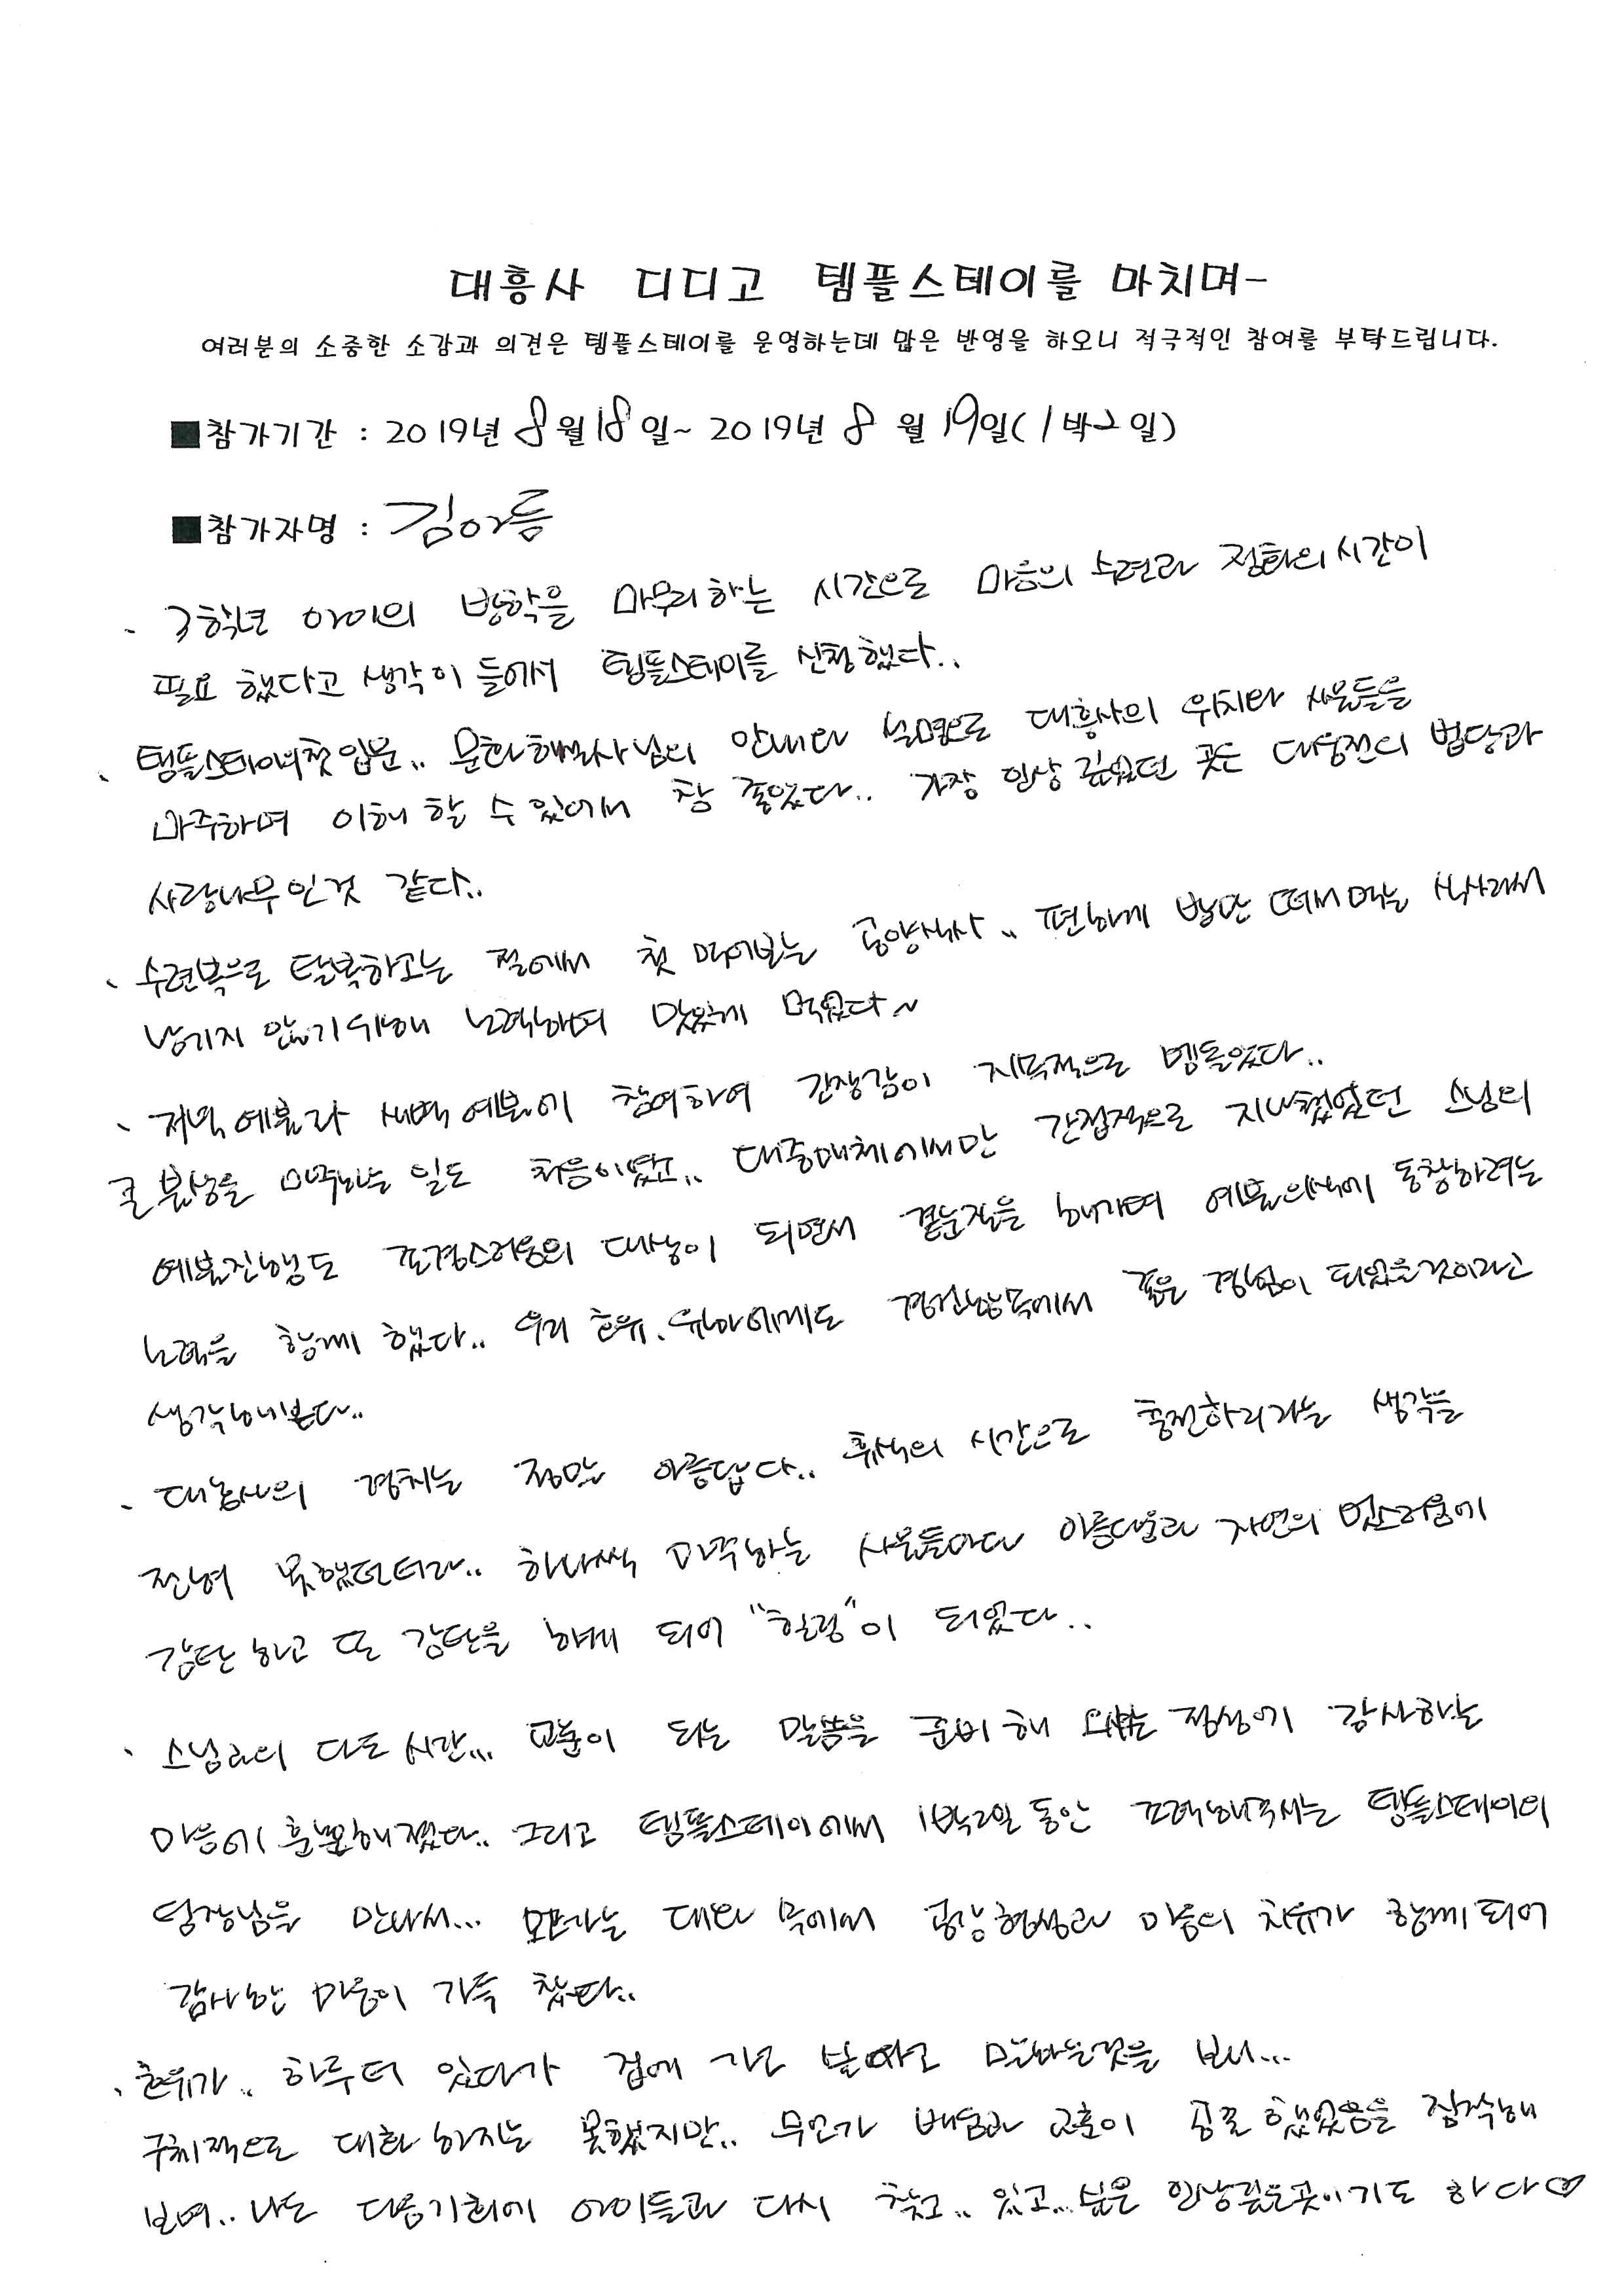 대흥사 디디고 템플스테이를 마치며-
여러분의 소중한 소감과 의견은 템플스테이를 운영하는데 많은 반영을 하오니 적극적인 참여를 부탁드립니다.
■참가기간 : 2019년 8월 18일~ 2019년 8월 19일(1박2일)
■참가자명 : 김아름
、3학년 아이의 방학을 마무리하는 시간으로 마음의 수련과 정화의 시간이
필요 했다고 생각이 들어서 템플스테이를 신청했다..
、템플스테이의 첫 입문.. 문화해설사님의 안내와 설명으로 대흥사의 위치와 사물들을
마주하며 이해 할 수 있어서 참 좋았다.. 가장 인상 깊었던 곳은 대웅전의 법당과
사랑나무인것 같다..
、수련복으로 탈복하고는 절에서 첫 먹어보는 공양식사.. 편하게 발만 떼서 먹는 식사라서
남기지 않기위해 노력하며 맛있게 먹었다~
、저녁예불과 새벽예불에 참여하여 긴장감이 지속적으로 맴돌았다..
큰 불상을 마주하는 일도 처음이였고.. 대중매체에서만 간접적으로 지나쳤었던 스님의
예불진행도 조심스러움의 대상이 되면서 곁눈질을 해가며 예불의식에 동참하려는
노력을 함께 했다.. 우리 흔유.유아에게도 경건함속에서 좋은 경험이 되었을것이라고
생각해본다..
、대흥사의 경치는 정말 아름답다.. 휴식의 시간으로 충전하리라는 생각을
전혀 못했던터라.. 하나씩 마주하는 사물들마다 아름다움과 자연의 멋스러움에
감탄하고 또 감탄을 하게 되어 "힐링"이 되었다..
、스님과의 다도 시간... 교훈이 되는 말씀을 준비해 오시는 정성에 감사하는
마음에 훈훈해졌다.. 그리고 템플스테이에서 1박2일 동안 노력해주시는 템플스테이의
팀장님을 만나서... 오고가는 대화 속에서 공감형성과 마음의 치유가 함께 되어
감사한 마음이 가득 찼다..
、흔유가.. 하루더 있다가 집에 가고 싶다고 말하는것을 보니...
구체적으로 대화 하지는 못했지만.. 무언가 배움과 교훈이 공존 했었음을 짐작해
보며.. 나도 다음기회에 아이들과 다시 찾고.. 있고... 싶은 인상깊은곳이기도 하다♡